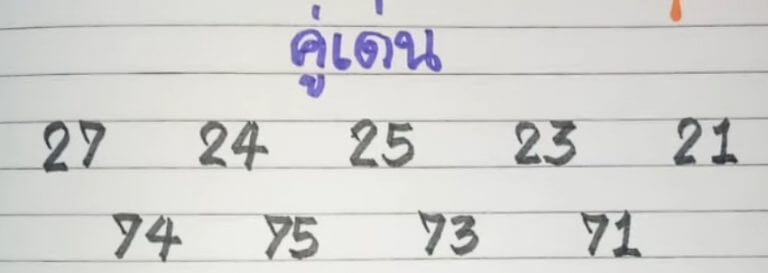 คู่เด่น
27 24 25 23 21
74 75 73 71